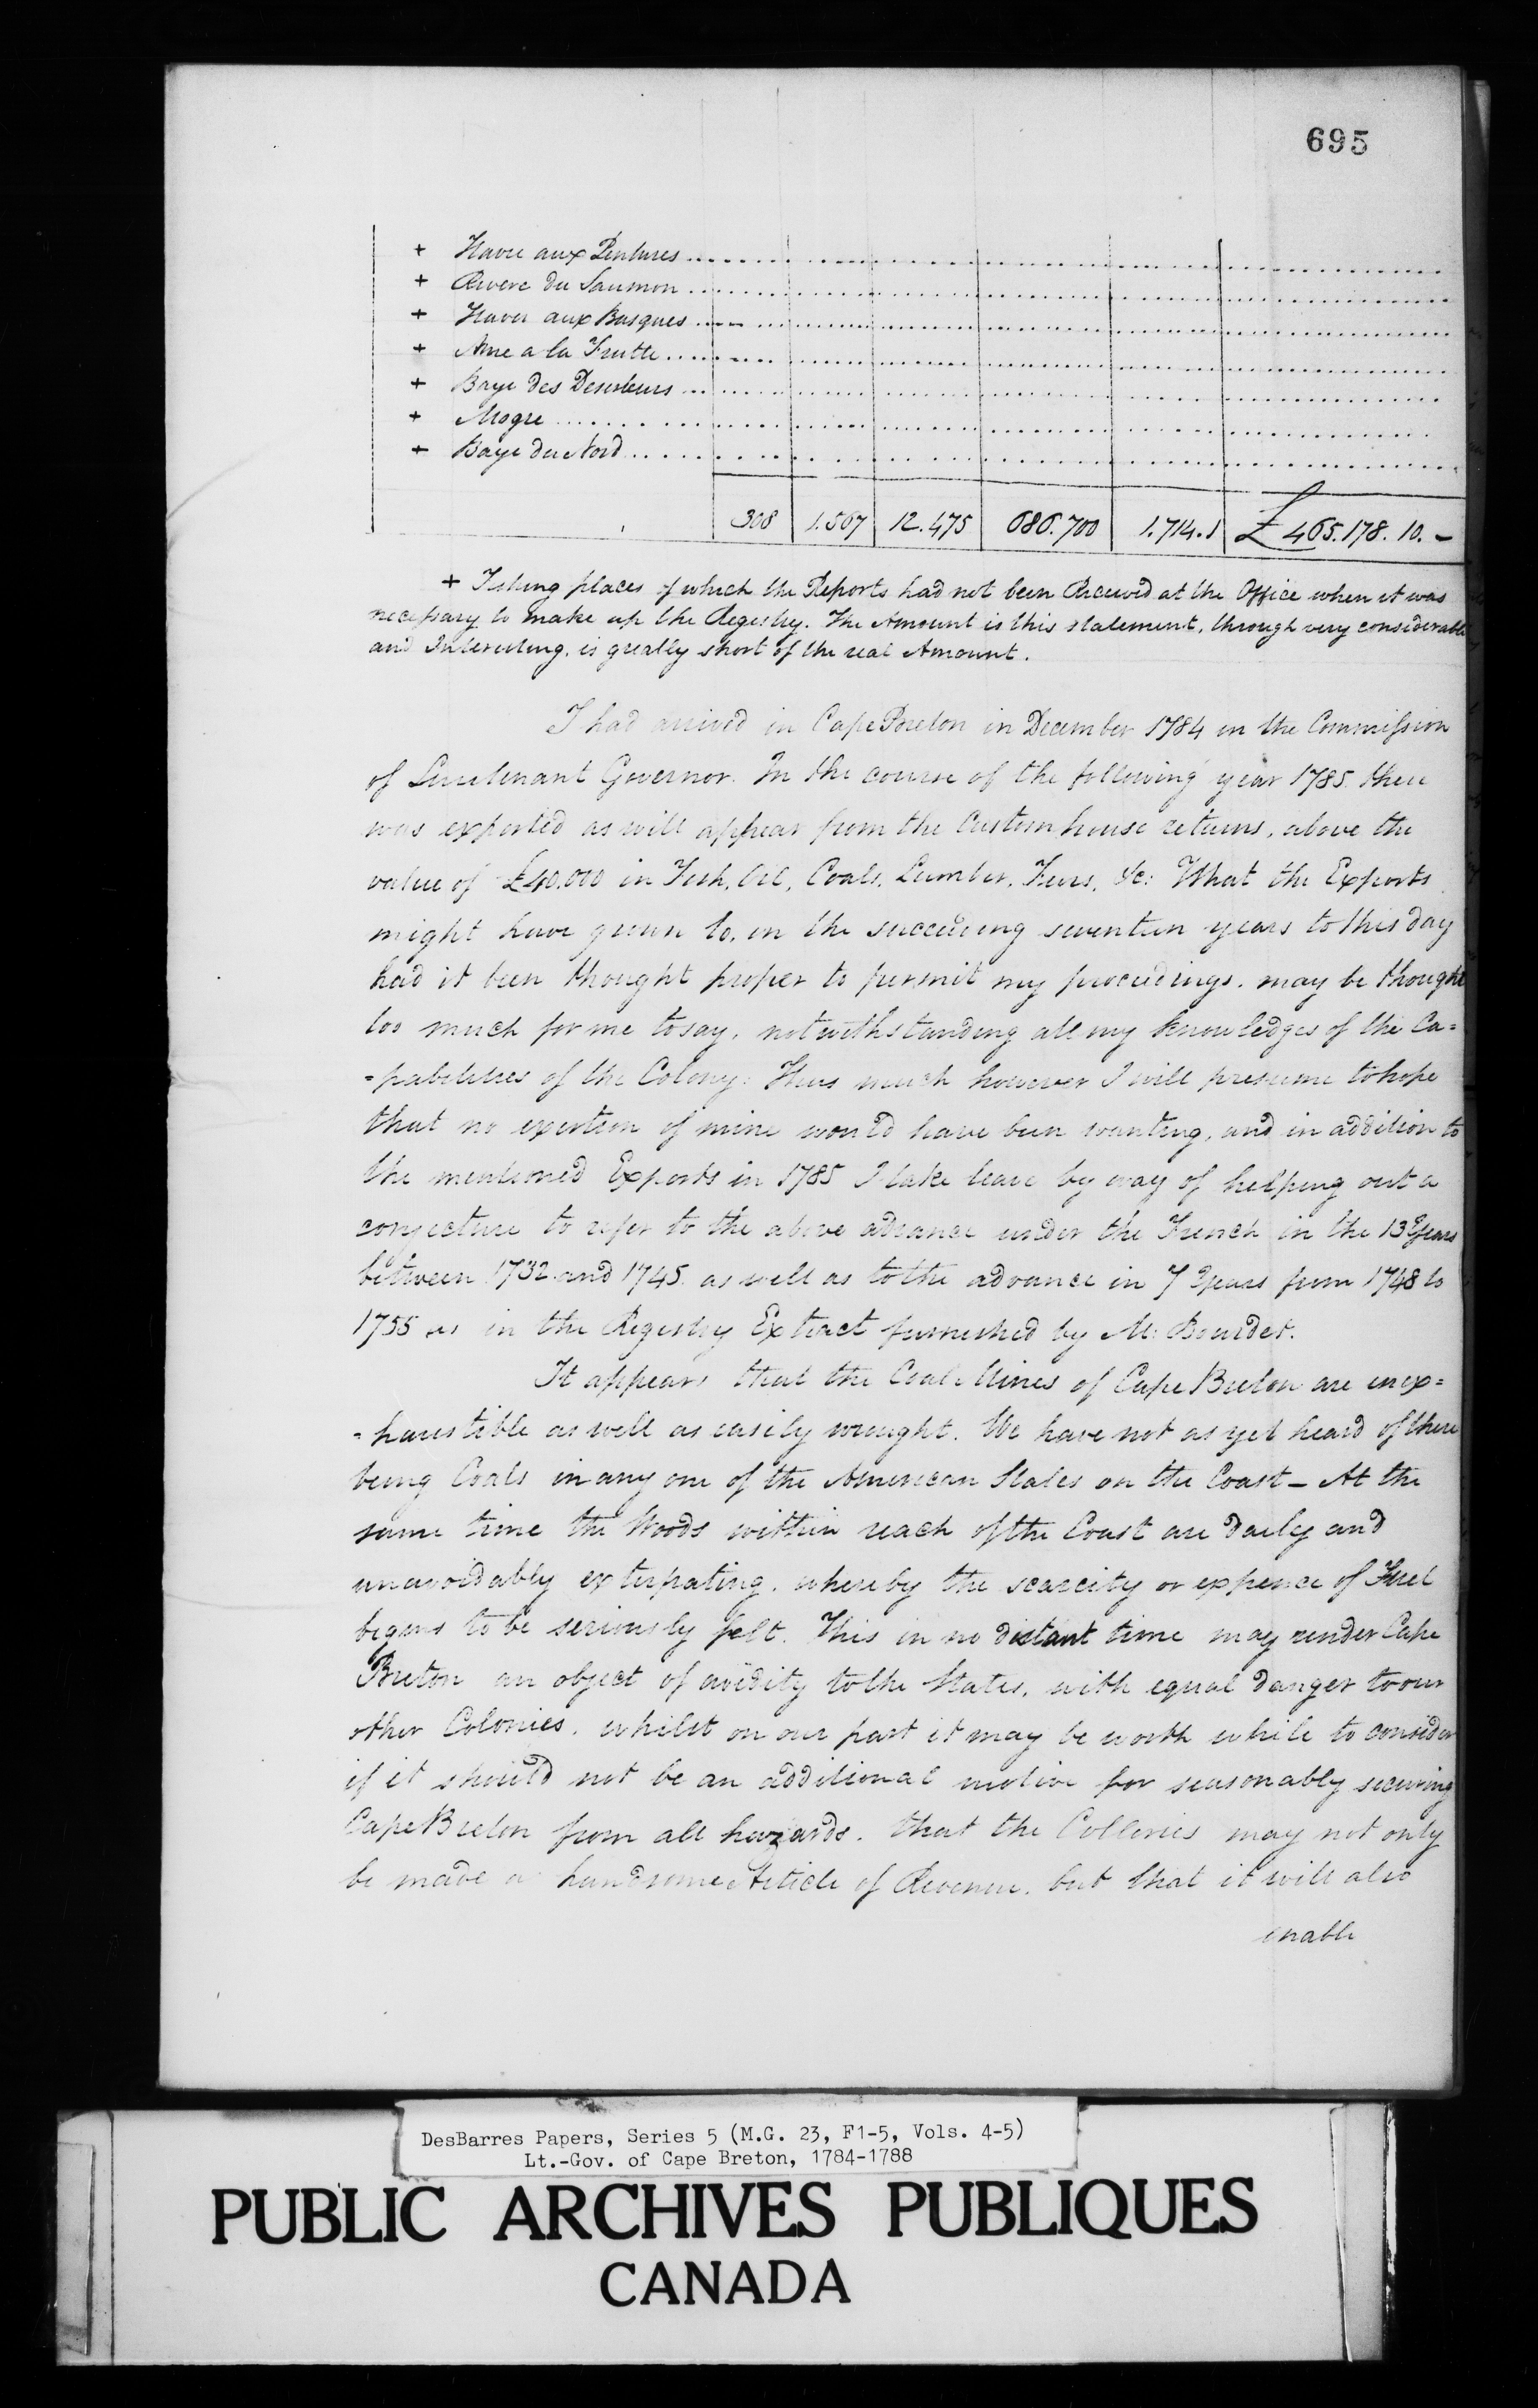 695
+ Havre aux Pentures
+ Rivere du Saumon
+ Havre aux Basques
+ Anse a la Fruitte
+ Baye des Deserteurs
+ Magre
+ Baye du Nord
308 1.567 12.475 686.700 1.714.1 £ 465.178. 10. -
+ Fishing places of which the Reports had not been Received at the Office when it was
necessary to make up the Registry. The Amount is this statement, through very considerable
and Interesting, is greatly short of the real Amount.
I had arrived in Cape Breton in December 1784 in the Commission
of Lieutenant Governor. In the course of the following year 1785. there
was exported as will appear from the Custom house returns, above the
value of £40.000 in Fish, Oil, Coals, Lumber, Furs, &c: What the Exports
might have grown to, in the succeeding seventeen years to this day
had it been thought proper to permit my proceedings. may be thought
too much for me to say, notwithstanding all my knowledges of the Ca=
=pabilities of the Colony: Thus much however I will presume to hope
that no exertion of mine would have been wanting, and in addition to
the mentioned Exports in 1785 I take leave by way of helping out a
conjecture to refer to the above advance under the French in the 13 Years
between 1732 and 1745. as well as to the advance in 7 Years from 1748 to
1755 as in the Registry Extract furnished by M: Bourdet.
It appears that the Coal Mines of Cape Breton are inex=
=haustible as well as easily wrought. We have not as yet heard of there
being Coals in any one of the American States on the Coast - At the
same time the Woods within reach of the Coast are daily and
unavoidably extirpating, whereby the scarcity or expence of Fuel
begins to be seriously felt. This in no distant time may render Cape
Breton an object of avidity to the States, with equal danger to our
other Colonies, whilst on our part it may be worth while to consider
if it should not be an additional motive for seasonably securing
Cape Breton from all hazards. that the Collieries may not only
be made a handsome Article of Revenue, but that it will also
enable
DesBarres Papers, Series 5 (M.G. 23, F1-5, Vols. 4-5)
Lt.-Gov. of Cape Breton, 1784-1788
PUBLIC ARCHIVES PUBLIQUES
CANADA